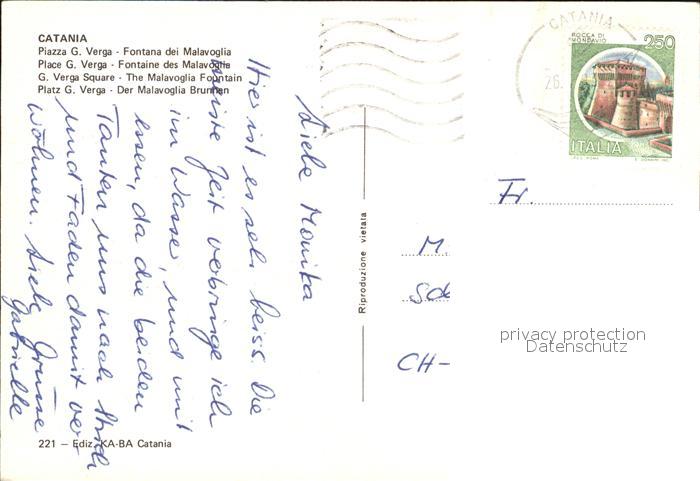 CATANIA
Piazza G. Verga - Fontana dei Malavoglia
Place G. Verga - Fontaine des Malavoglia
G. Verga Square - The Malavoglia Fountain
Platz G. Verga - Der Malavoglia Brunnen
Liebe Monika
Hier ist es sehr heiss. Die
meiste Zeit verbringe ich
im Wasser, und mit
essen, da die beiden
Tanten uns nach Strich
und Faden damit ver-
wöhnen. Liebe Grüsse
Gabrielle
221 – Ediz. KA-BA Catania
Riproduzione vietata
CATANIA
26.
ROCCA DI
MONDAVIO
250
ITALIA
Fr.
M.
CH-
privacy protection
Datenschutz